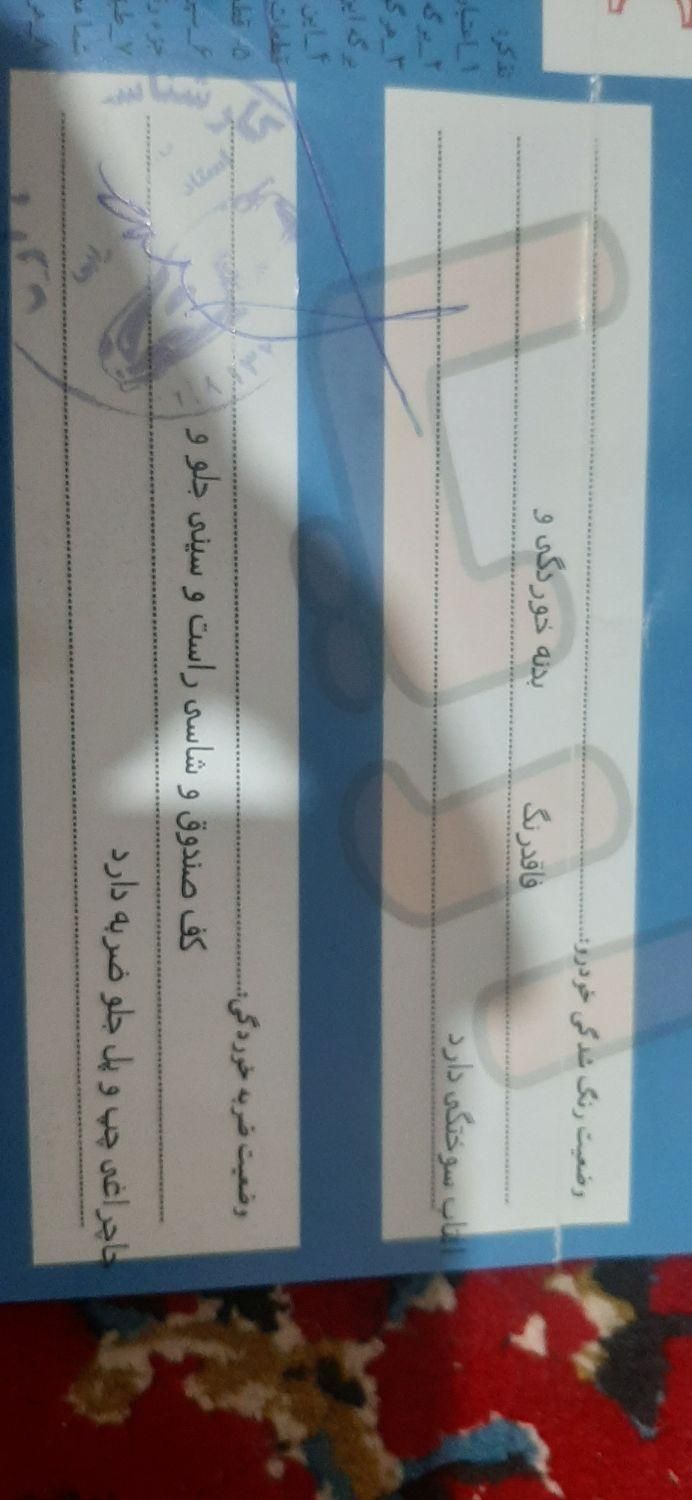 تذکر:
وضعیت رنگ شدگی خودرو:
فاقدرنگ بدنه خوردگی و
افتاب سوختگی دارد
وضعیت ضربه خوردگی:
کف صندوق و شاسی راست و سینی جلو و
جاچراغی چپ و پل جلو ضربه دارد
کارشناسی